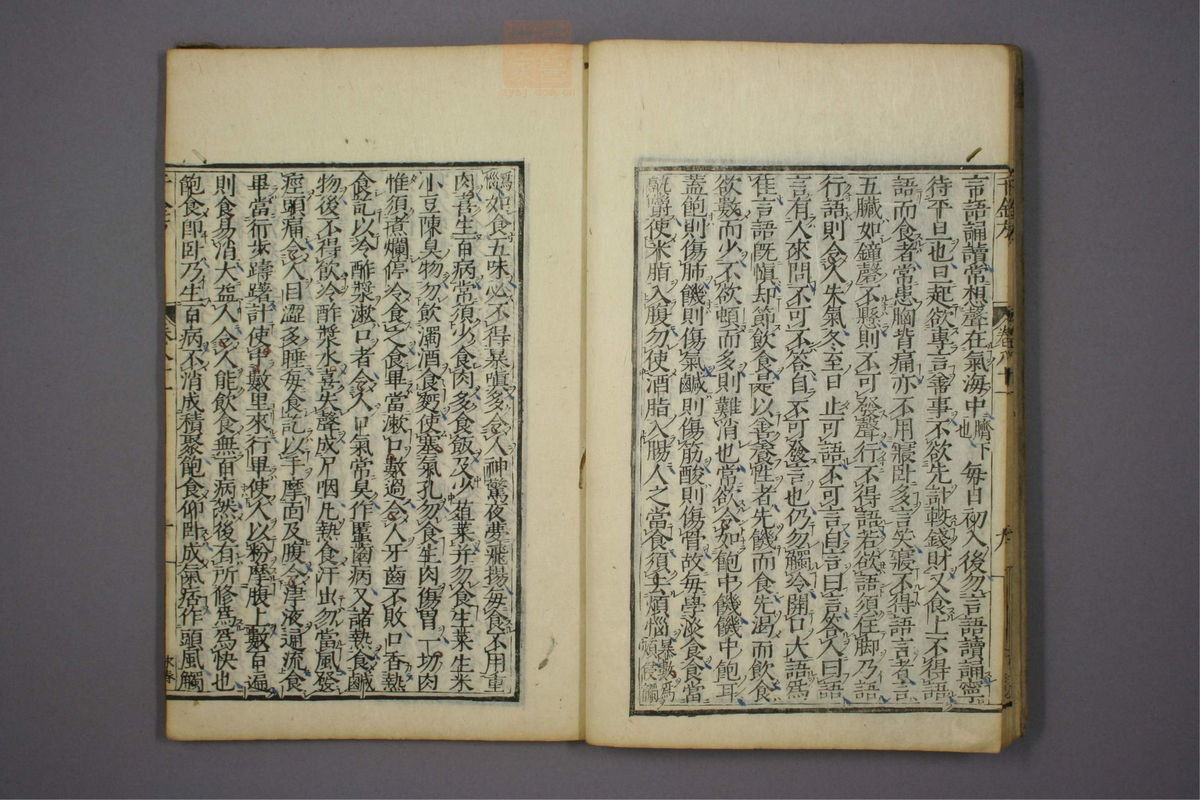 言語誦讀常想聲在氣海中臍下也每日初入後勿言語讀誦寧
待平旦也旦起欲專言善事不欲先計較錢財又食上不得語
語而食者常患胸背痛亦不用寢臥多言笑寢不得語言者言
五臟如鐘磬不懸則不可發聲行不得語若欲語須住脚乃語
行語則令人失氣冬至日止可語不可言自言曰言答人曰語
言有人來問不可不答自不可發言也仍勿觸冷開口大語爲
佳言語既慎却節飲食是以善養性者先饑而食先渴而飲食
欲數而少不欲頓而多則難消也常欲令如飽中饑饑中飽耳
蓋飽則傷肺饑則傷氣鹹則傷筋酸則傷骨故每學淡食食當
熟嚼使米脂入腹勿使酒脂入腸人之當食須去煩惱暴數爲煩侵觸
爲惱如食五味必不得暴嗔多令人神驚夜夢飛揚每食不用重
肉喜生百病常須少食肉多食飯及少菹菜并勿食生菜生米
小豆陳臭物勿飲濁酒食麪使塞氣孔勿食生肉傷胃一切肉
惟須煮爛停冷食之食畢當漱口數過令人牙齒不敗口香熱
食訖以冷酢漿漱口者令人口氣常臭作䘌齒病又諸熱食鹹
物後不得飲冷酢漿水喜失聲成尸咽凡熱食汗出勿當風發
痙頭痛令人目澀多睡每食訖以手摩面及腹令津液通流食
畢當行步躊躇計使中數里來行畢使人以粉摩腹上數百遍
則食易消大益人令人能飲食無百病然後有所修爲爲快也
飽食即臥乃生百病不消成積聚飽食仰臥成氣痞作頭風觸